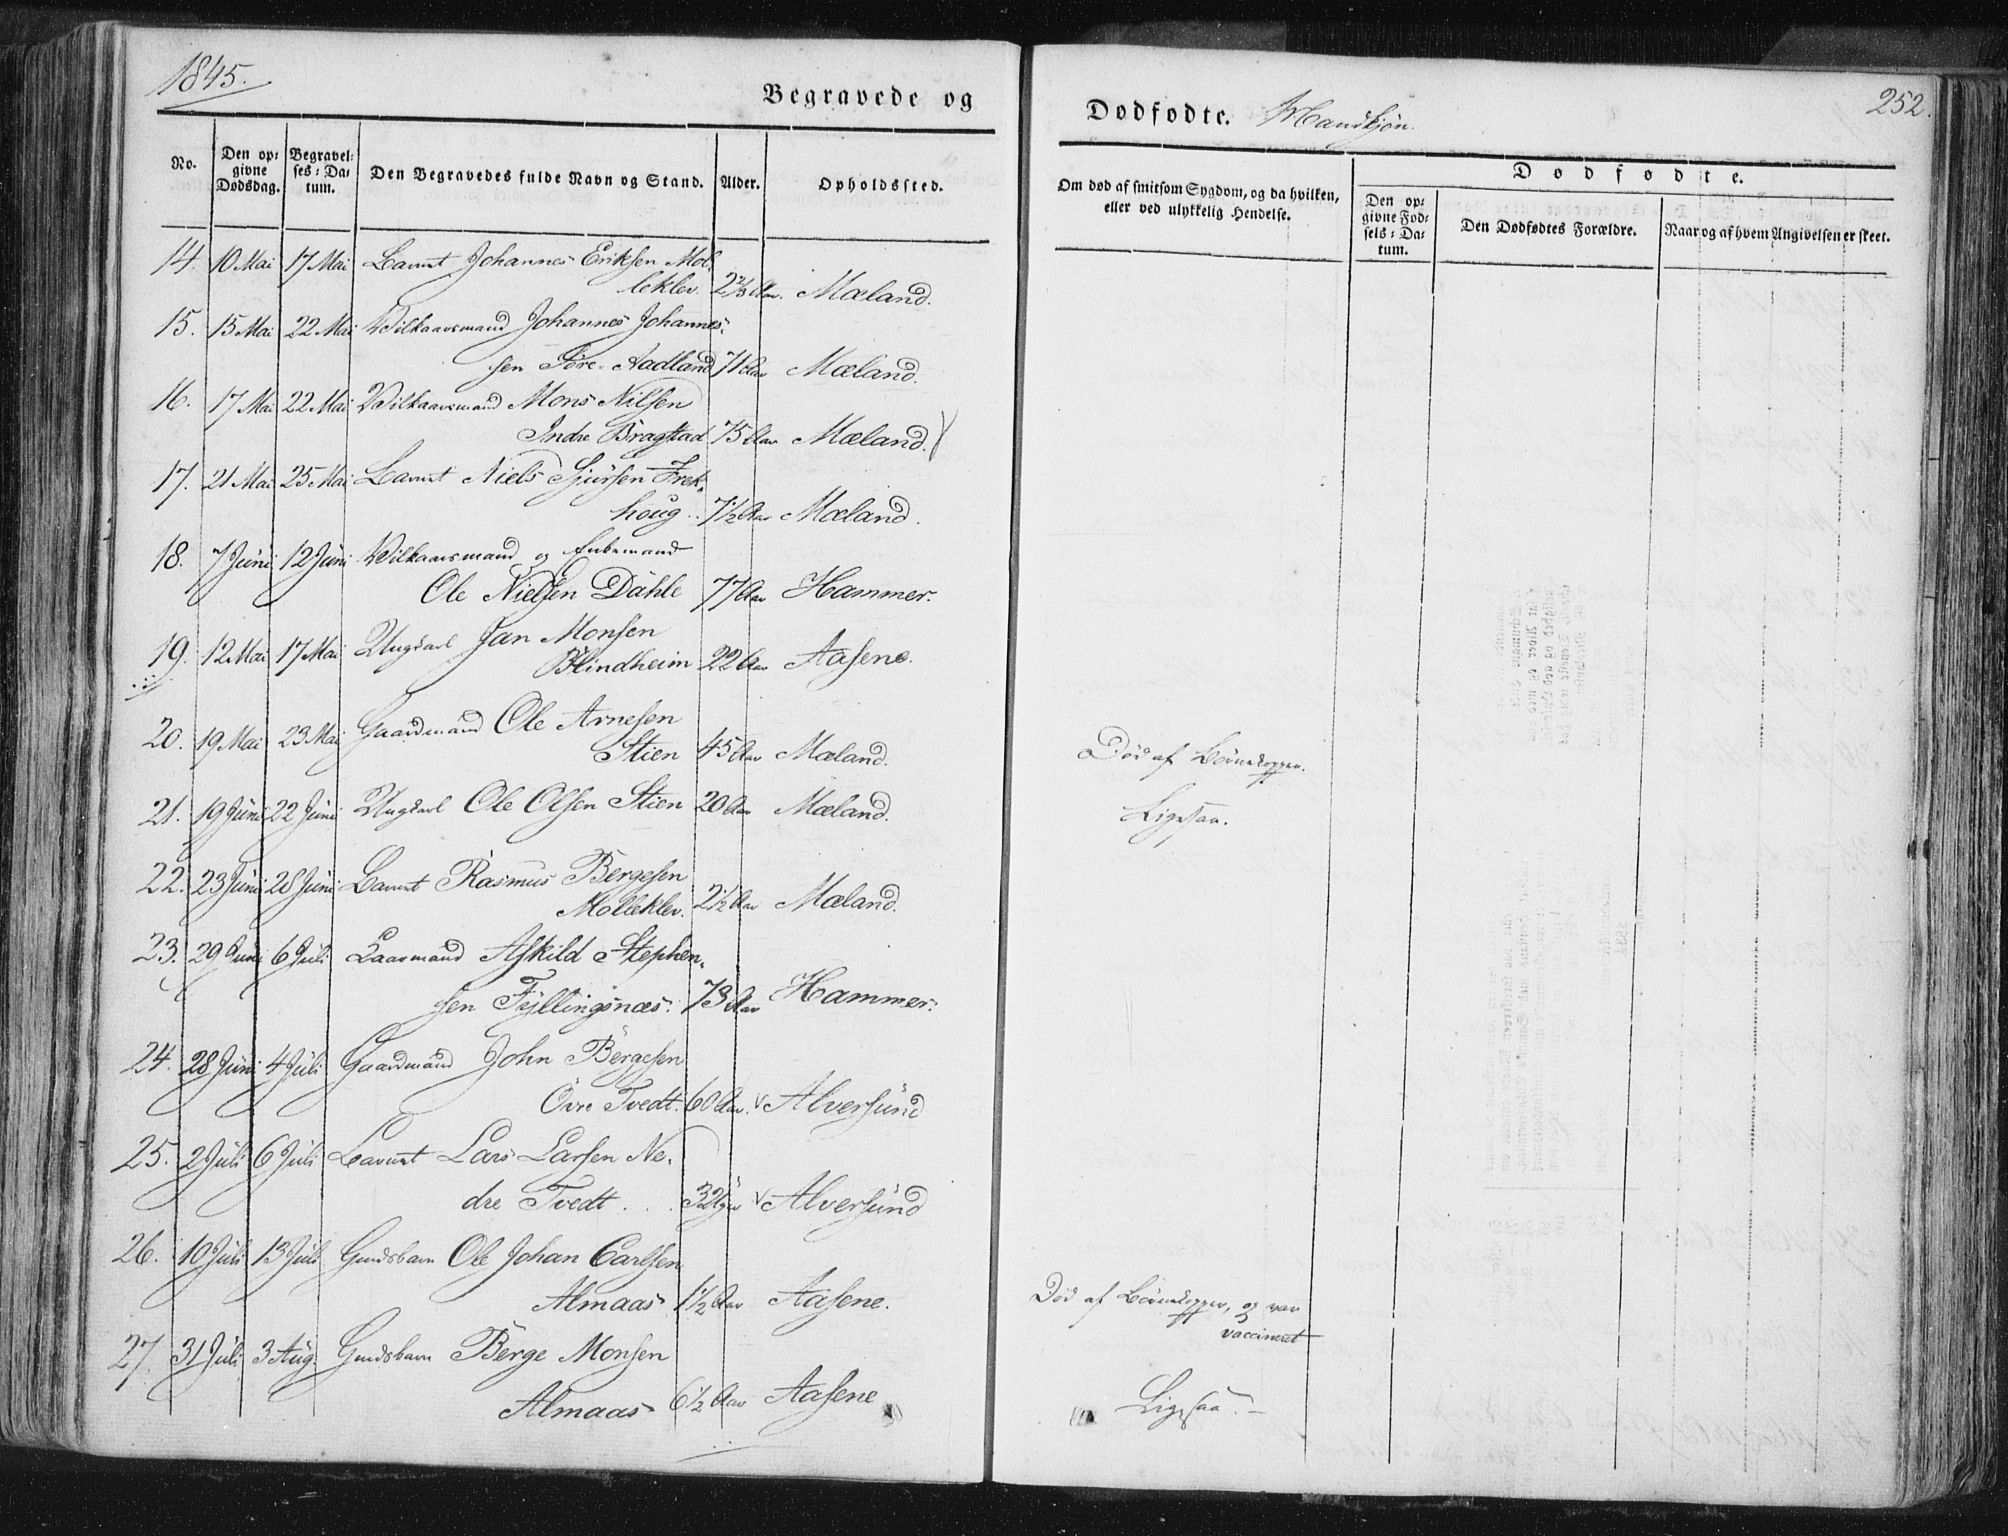 1845.
Begravede og
Dødfødte. Mandkjøn.
252.
No.
Den op=
givne
Dødsdag.
Begravel=
ses=Da=
tum.
Den Begravedes fulde Navn og Stand.
Alder.
Opholdssted.
Om død af smitsom Sygdom, og da hvilken,
eller ved ulykkelig Hendelse.
Dødfødte.
Den op=
givne Fød=
sels=Da=
tum.
Den Dødfødtes Forældre.
Naar og af hvem Angivelsen er skeet.
14. 10 Mai 17 Mai Barnet Johannes Eriksen Mol=
leklev. 2⅔ Aar. Mæland.
15. 15 Mai 22 Mai Wilkaarsmand Johannes Johannes=
sen Aadland 71 Aar Mæland.
16. 17 Mai 22 Mai Wilkaarsmand Mons Nilsen
Indre Bragstad 75 Aar Mæland.
17. 21 Mai 25 Mai Barnet Niels Sjursen Frek=
houg .. 7½ Aar Mæland.
18. 7 Juni 12 Juni Wilkaarsmand og Enkemand
Ole Nielsen Dahle 77 Aar Hammer.
19. 12 Mai 17 Mai Ungkarl Jan Monsen
Blindheim 22 Aar Aasene.
20. 19 Mai 23 Mai Gaardmand Ole Arnesen
Stien 45 Aar Mæland. Død af Børnekopper.
21. 19 Juni 22 Juni Ungkarl Ole Olsen Stien 20 Aar Mæland. Ligesaa.
22. 23 Juni 28 Juni Barnet Rasmus Bergesen
Molleklev. 2½ Aar Mæland.
23. 29 Juni 6 Juli Kaarmand Askild Stephen=
sen Fyllingsnæs. 73 Aar Hammer.
24. 28 Juni 4 Juli Gaardmand John Bergesen
Øvre Tvedt. 60 Aar. Alversund
25. 2 Juli 6 Juli Barnet Lars Larsen Ne=
dre Tvedt . . 3 Uger Alversund
26. 10 Juli 13 Juli Ole Johan Carlsen
Almaas 1½ Aar Aasene. Død af Børnekopper, og var
vaccineret
27. 31 Juli 3 Aug. Berge Monsen
Almaas 6½ Aar Aasene Ligesaa.